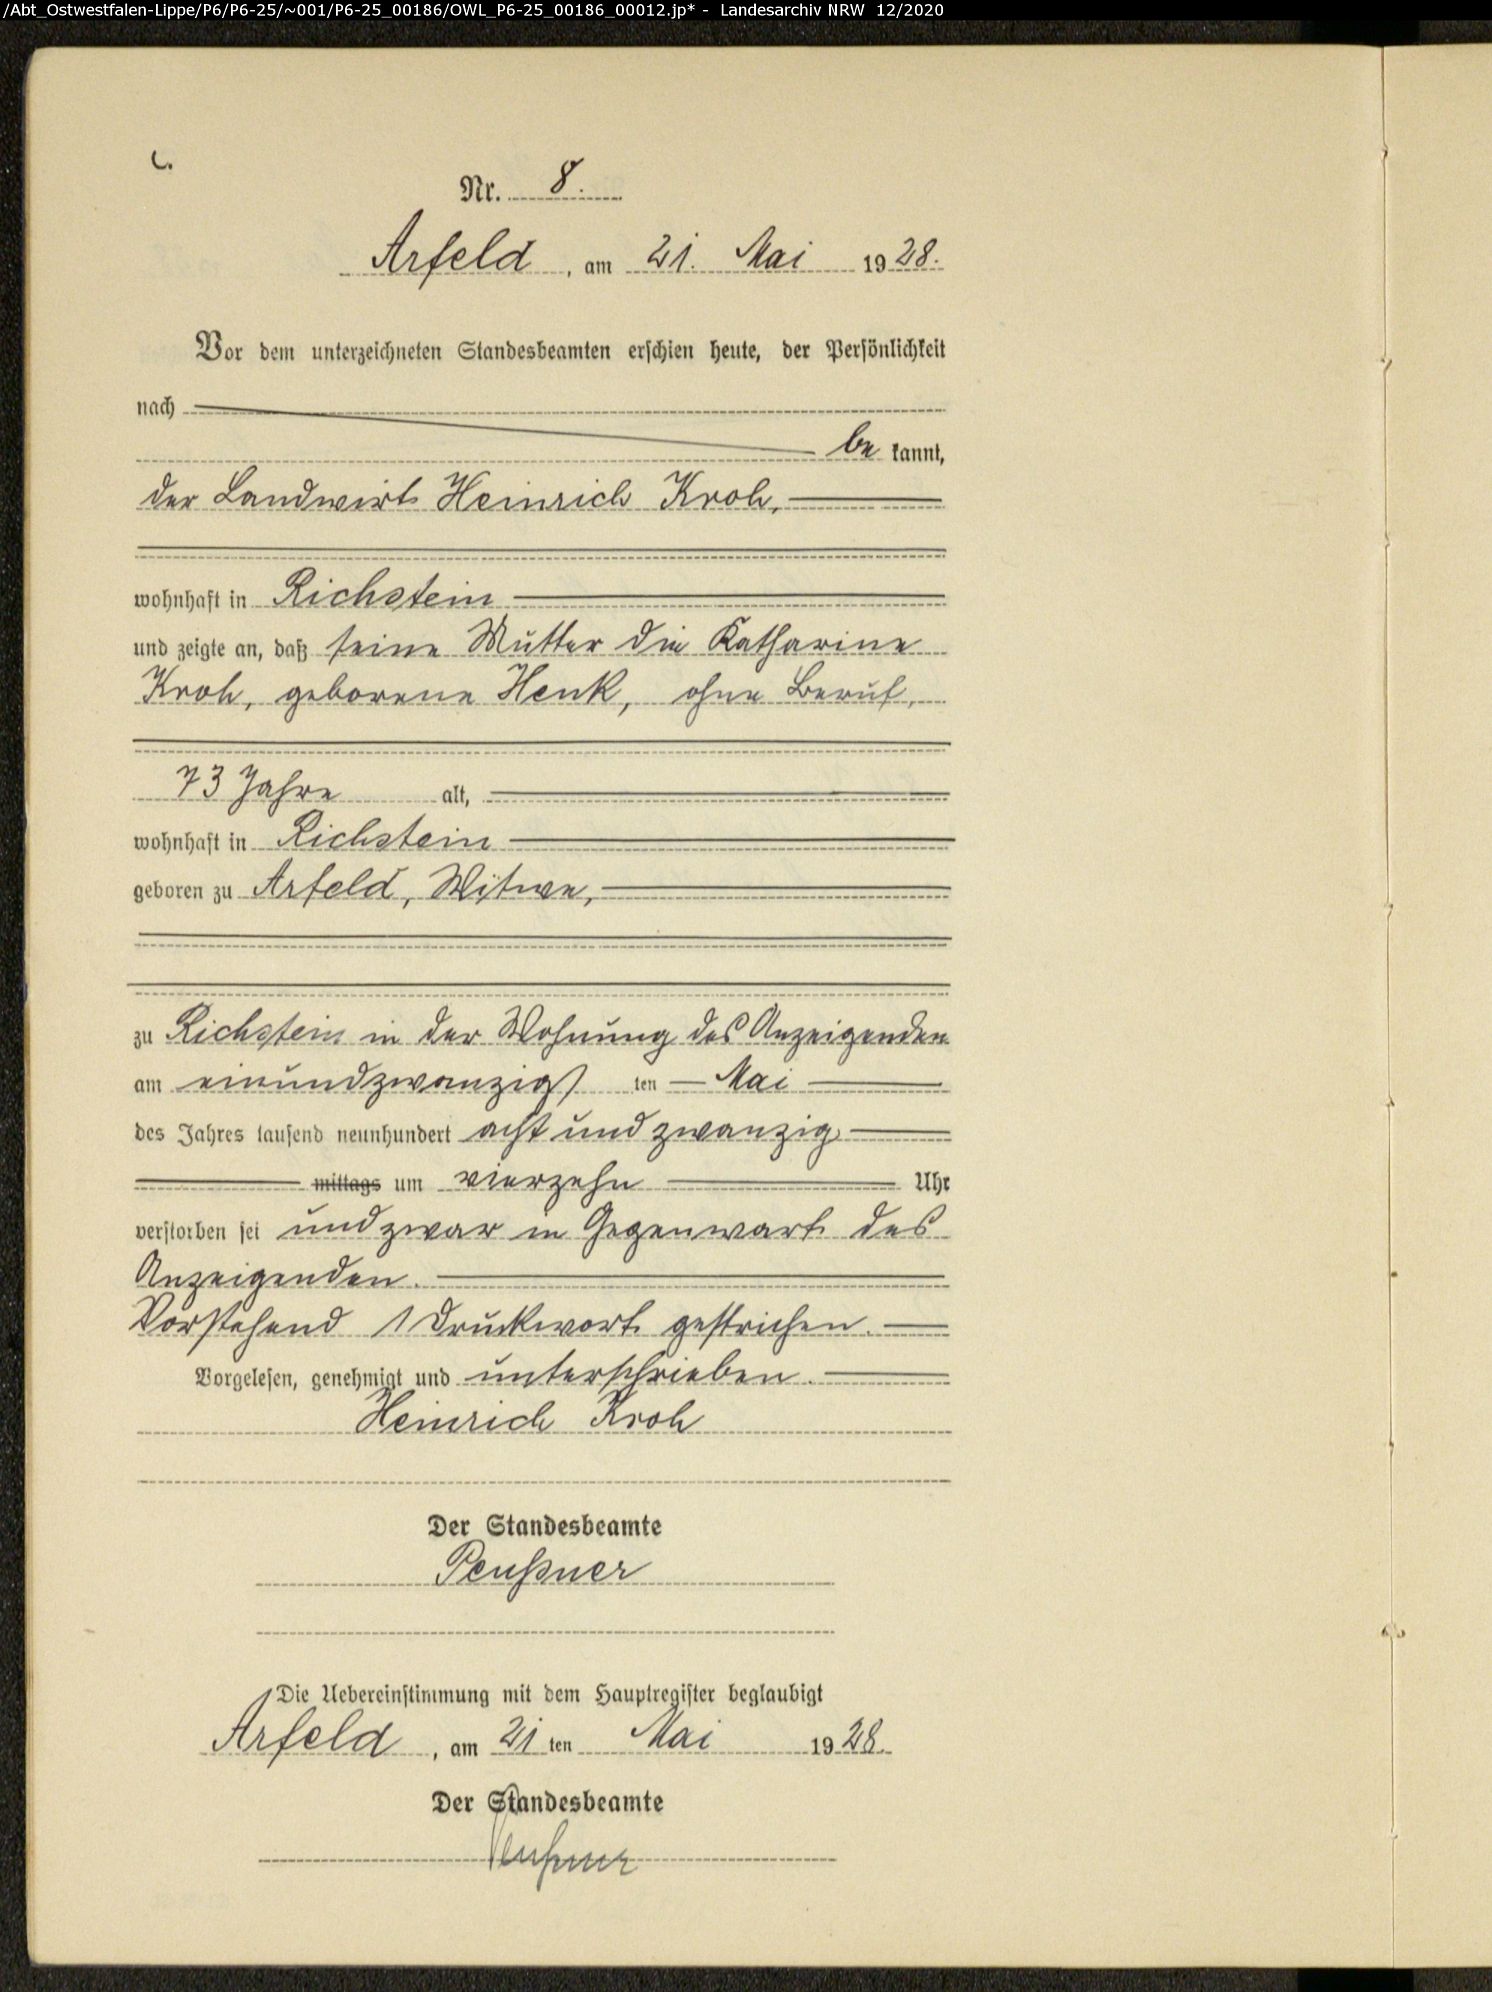 /Abt_Ostwestfalen-Lippe/P6/P6-25/~001/P6-25_00186/OWL_P6-25_00186_00012.jp* - Landesarchiv NRW 12/2020
C.
Nr. 8.
Arfeld, am 21. Mai 1928.
Vor dem unterzeichneten Standesbeamten erschien heute, der Persönlichkeit
nach
be kannt,
der Landwirt Heinrich Kroh,
wohnhaft in Richstein
und zeigte an, daß seine Mutter die Katharine
Kroh, geborene Henk, ohne Beruf,
73 Jahre alt,
wohnhaft in Richstein
geboren zu Arfeld, Witwe,
zu Richstein in der Wohnung des Anzeigenden
am einundzwanzigs ten Mai
des Jahres tausend neunhundert acht und zwanzig
mittags um vierzehn Uhr
verstorben sei und zwar in Gegenwart des
Anzeigenden.
Vorstehend 1 Druckwort gestrichen.
Vorgelesen, genehmigt und unterschrieben.
Heinrich Kroh
Der Standesbeamte
Peußner
Die Uebereinstimmung mit dem Hauptregister beglaubigt
Arfeld, am 21 ten Mai 1928.
Der Standesbeamte
Peußner